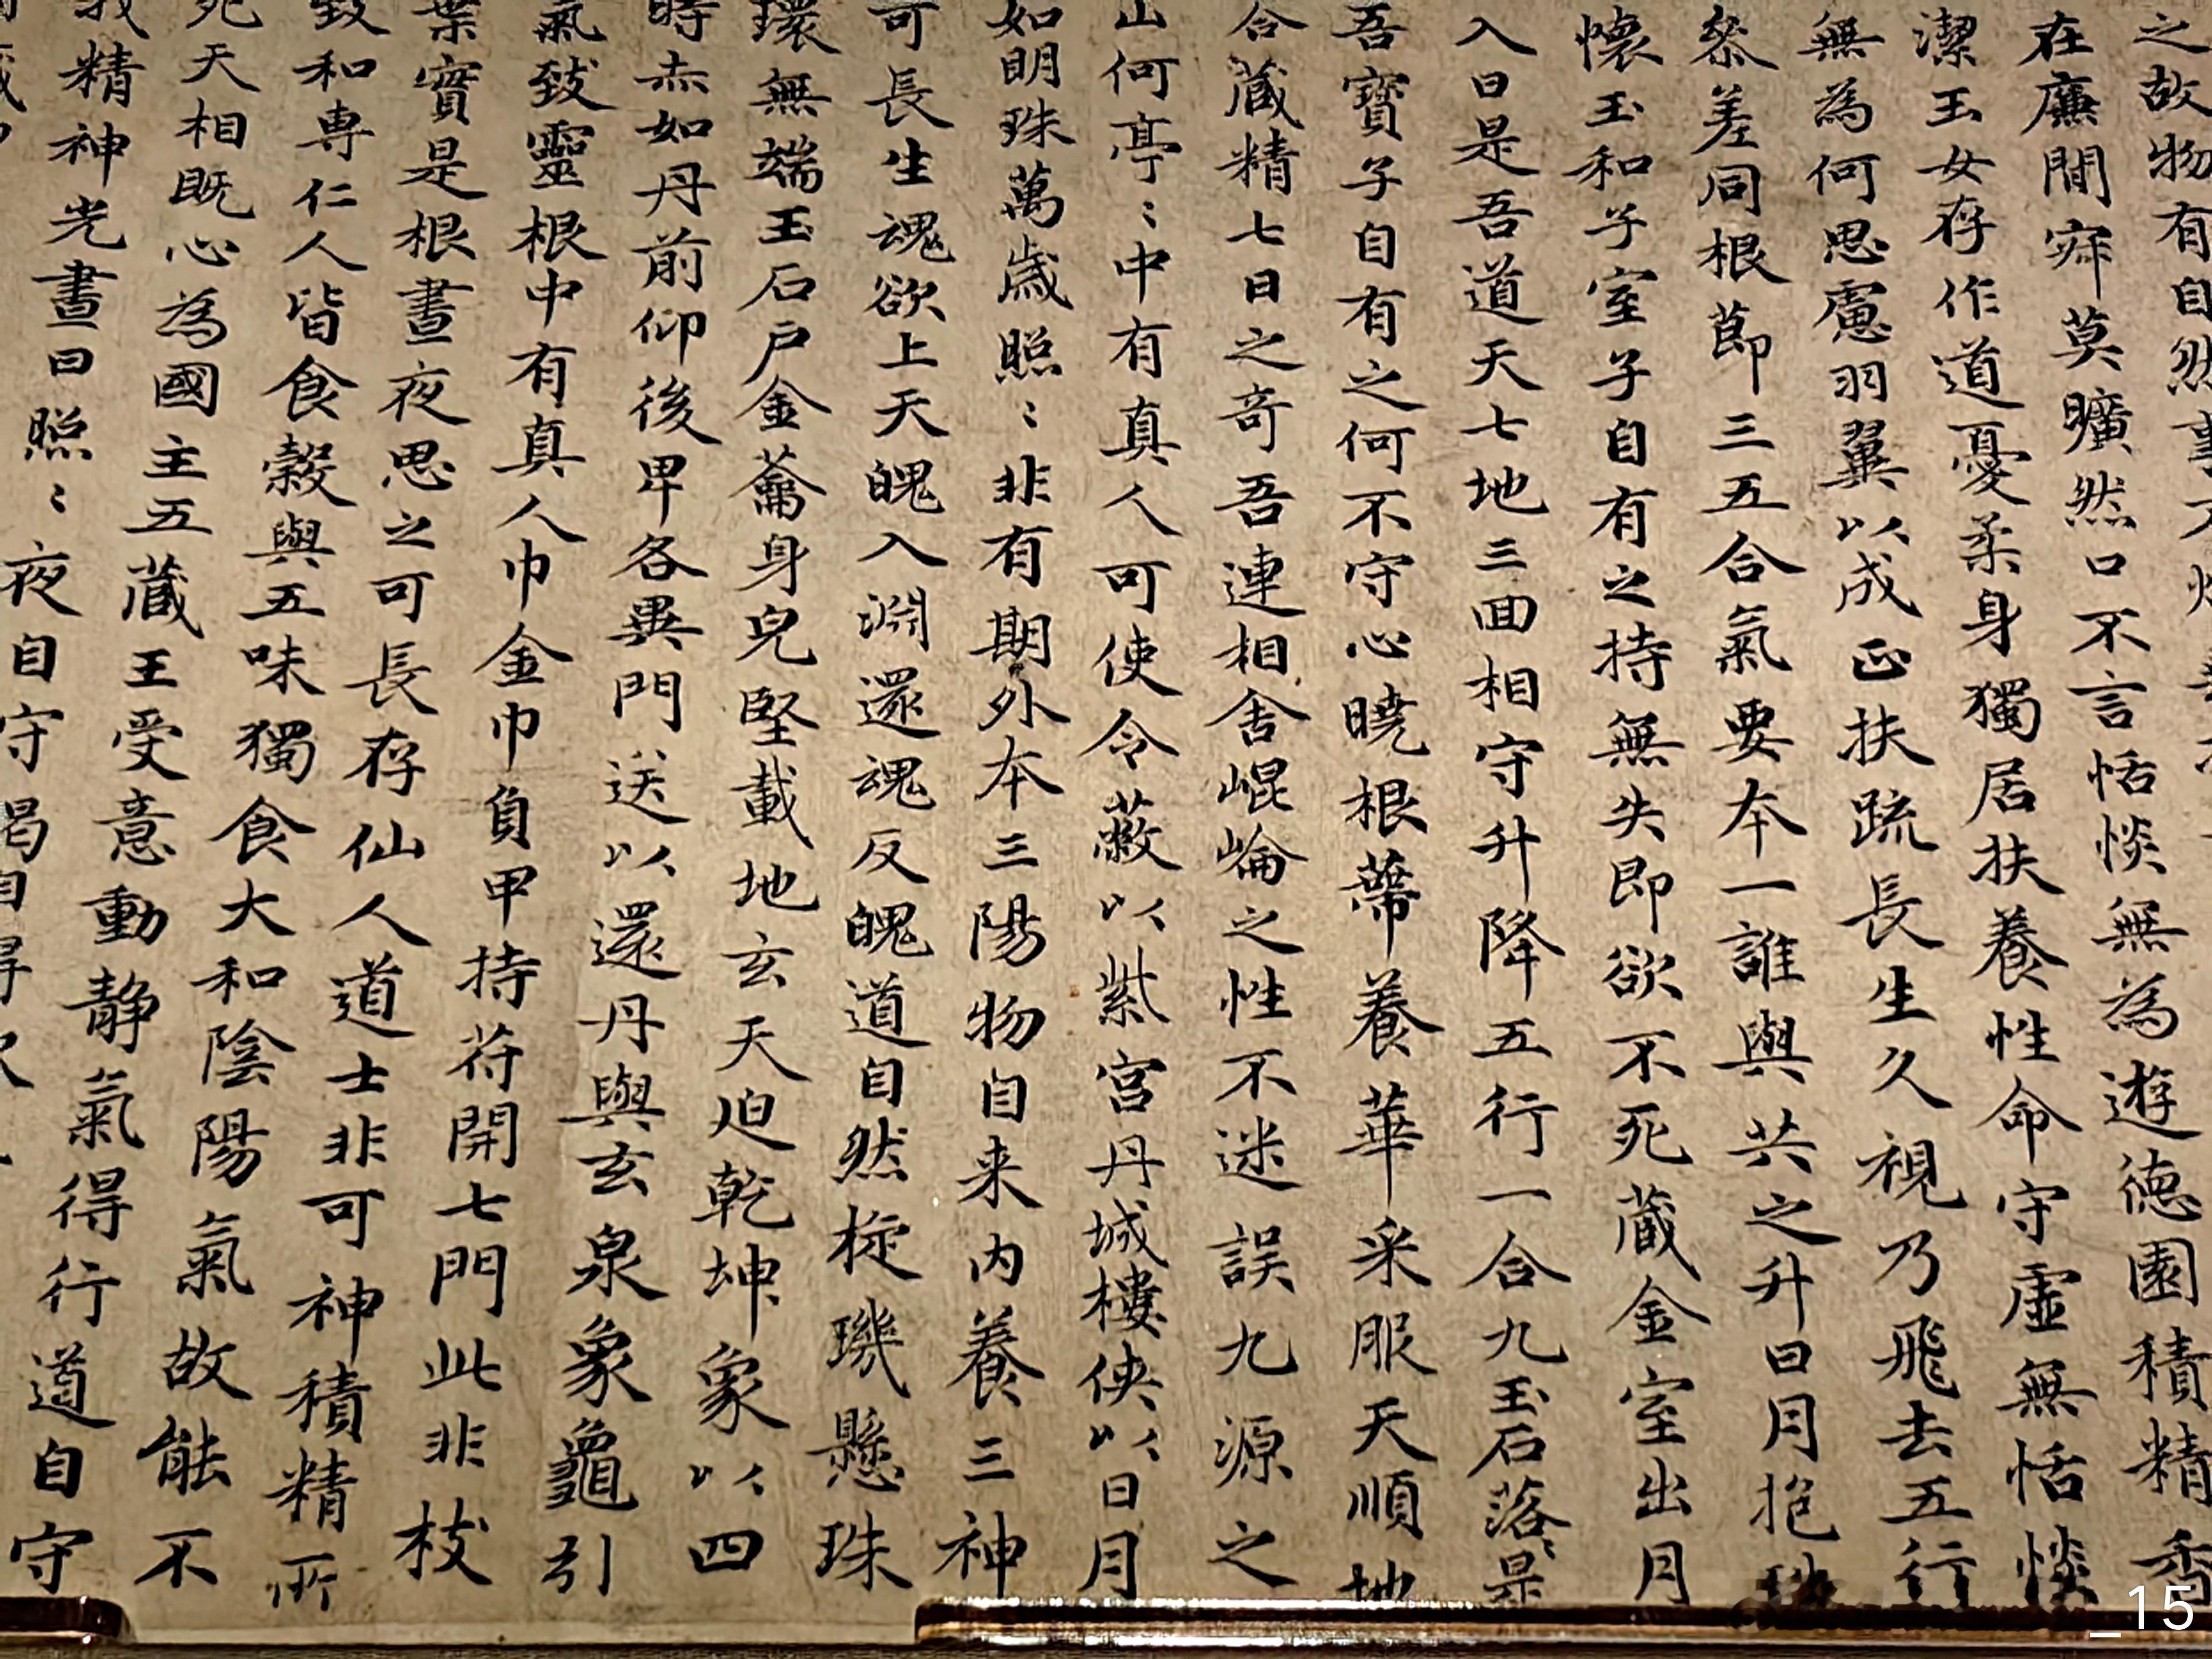 之故物有自然事不煩
在廉間寂莫曠然口不言恬惔無為遊德園積精香
潔玉女存作道憂柔身獨居扶養性命守虛無恬惔
無為何思慮羽翼以成正扶疏長生久視乃飛去五行
叅差同根莭三五合氣要本一誰與共之升日月抱珠
懷玉和子室子自有之持無失即欲不死藏金室出月
入日是吾道天七地三回相守升降五行一合九玉石落是
吾寶子自有之何不守心曉根蔕養華采服天順地
合藏精七日之奇吾連相舍崐崘之性不迷誤九源之
山何亭〻中有真人可使令蔽以紫宮丹城樓俠以日月
如明珠萬歲照〻非有期外本三陽物自来內養三神
可長生魂欲上天魄入淵還魂反魄道自然㨀璣懸珠
環無端玉石戶金籥身皃堅載地玄天迫乾坤象以四
時赤如丹前仰後卑各異門送以還丹與玄泉象龜引
氣致靈根中有真人巾金巾負甲持苻開七門此非枝
葉實是根晝夜思之可長存仙人道士非可神積精所
致和専仁人皆食榖與五味獨食大和陰陽氣故能不
死天相既心為國主五藏王受意動静氣得行道自守
我精神光晝日照〻夜自守渴自得